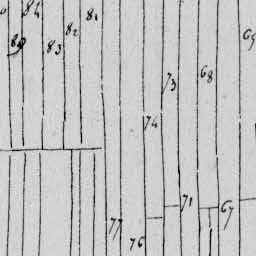 84
81
82
83
80
69
68
73
74
71
67
77
76